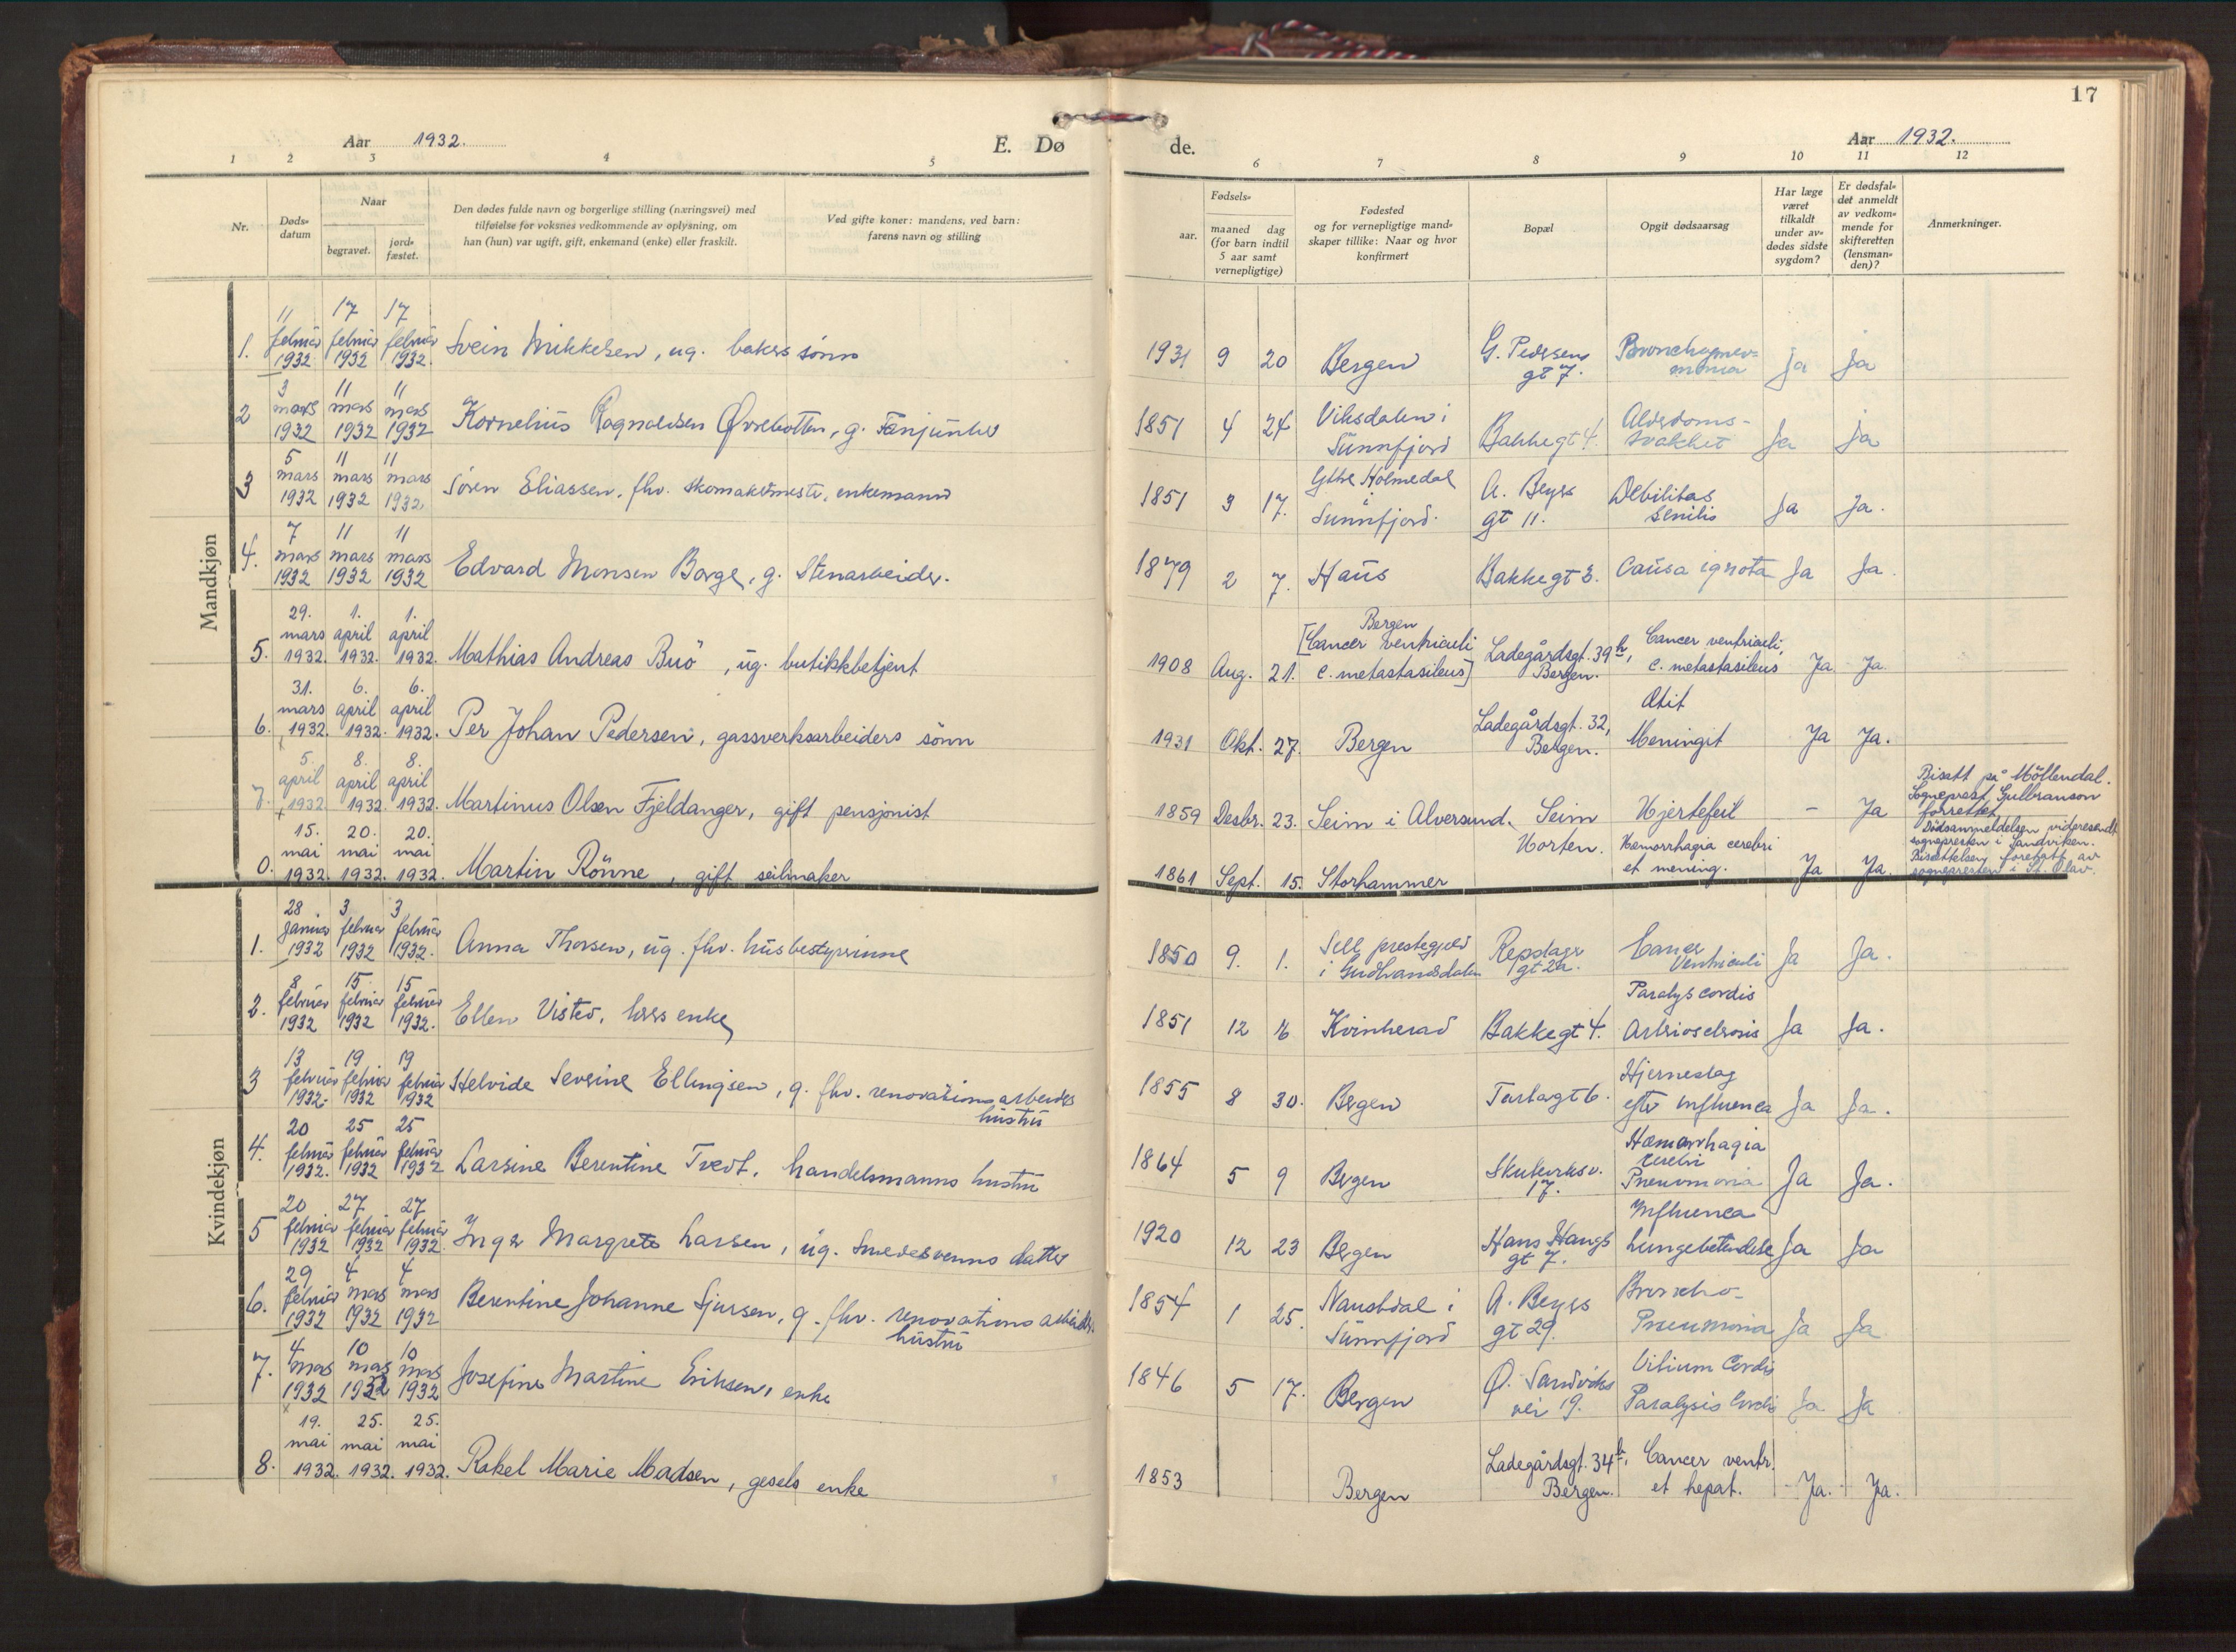 17
Aar 1932.
E. Dø
de.
Aar 1932.
1 2 3 4 5 6 7 8 9 10 11 12
Nr.
Døds-
datum
Naar
begravet.
jord-
fæstet.
Den dødes fulde navn og borgerlige stilling (næringsvei) med
tilføielse for voksnes vedkommende av oplysning, om
han (hun) var ugift, gift, enkemand (enke) eller fraskilt.
Ved gifte koner: mandens, ved barn:
farens navn og stilling
Fødsels-
aar.
maaned dag
(for barn indtil
5 aar samt
vernepligtige)
Fødested
og for vernepligtige mand-
skaper tillike: Naar og hvor
konfirmert
Bopæl
Opgit dødsaarsag
Har læge
været
tilkaldt
under av-
dødes sidste
sygdom?
Er dødsfal-
det anmeldt
av vedkom-
mende for
skifteretten
(lensman-
den)?
Anmerkninger.
Mandkjøn
1. 11 februar 1932 17 februar 1932 17 februar 1932. Svein Mikkelsen, ug. bakers sønn 1931 9 20 Bergen G. Pedersens gt 7. Bronchopneumonia Ja Ja
2 3 mars 1932 11 mars 1932 11 mars 1932 Kornelius Ragnaldsen Øvrebotten, g. Fanjunker 1851 4 24 Viksdalen i Sunnfjord Bakkegt 4. Alderdoms-svakhet Ja Ja
3 5 mars 1932 11 mars 1932 11 mars 1932 Søren Eliassen, fhv. skomakermester, enkemann 1851 3 17. Ythre Holmedal i Sunnfjord. A. Beyers gt 11. Debilitas senilis Ja Ja.
4. 7 mars 1932 11 mars 1932 11 mars 1932 Edvard Monsen Borge, g. Stenarbeider. 1879 2 7. Haus Bakkegt 3. Causa ignota Ja Ja.
5. 29. mars 1932. 1. april 1932. 1. april 1932. Mathias Andreas Buö, ug. butikkbetjent 1908 Aug. 21. Bergen [Cancer ventriculi c. metastasibus] Ladegårdsgt. 39 b, Bergen. Cancer ventriculi, c. metastasibus Ja Ja
6. 31. mars 1932. 6. april 1932. 6. april 1932. Per Johan Pedersen, gassverksarbeiders sönn 1931 Okt. 27. Bergen Ladegårdsgt. 32, Bergen. Otit Meningit Ja Ja.
7. 5. april 1932. 8. april 1932. 8. april 1932. Martinus Olsen Fjeldanger, gift pensjonist 1859 Desbr. 23. Seim i Alversund. Seim Hjertefeil - Ja Bisatt på Möllendal. Sogneprest Gulbranson forrettet
0. 15. mai 1932. 20. mai 1932. 20. mai 1932. Martin Rönne, gift seilmaker 1861 Sept. 15. Storhammer Horten. Hæmorrhagia cerebri et mening. Ja Ja. Dödsanmeldelsen videresendt sognepresten i Sandviken. Bisettelsen foretatt av sognepresten i St. Olav.
Kvindekjøn
1. 28 januar 1932 3 februar 1932 3 februar 1932. Anna Thorsen, ug. fhv. husbestyrinne 1850 9. 1. Sell prestegjeld i Gudbrandsdalen Repslager gt 2a. Cancer Ventriculi Ja Ja.
2. 8 februar 1932 15 februar 1932 15 februar 1932. Ellen Visted, enke 1851 12 Kvinherad Bakkegt 4. Paralys cordis Ja Ja.
3 13 februar 1932. 19 februar 1932 19 februar 1932 Helvide Severine Ellingsen, g. fhv. renovationsarbeiders hustru 1855 8 30. Bergen Tartargt 6. Hjerneslag efter influenca Ja Ja.
4. 20 februar 1932. 25 februar 1932 25 februar 1932 Larsine Berentine Tvedt, handelsmanns hustru 1864 5 9 Bergen Skuteviksv. 17. Hæmorrhagia cerebri Pneumonia Ja Ja.
5 20 februar 1932 27 februar 1932 27 februar 1932. Inger Margrete Larsen, ug. Smedesvenns datter 1920 12 23 Bergen Hans Haugs gt 7. Influenca lungebetendelse Ja Ja
6. 29 februar 1932 4 mars 1932 4 mars 1932 Berentine Johanne Sjursen, g. fhv. renovationsarbeiders hustru 1854 1 25. Naustdal i Sunnfjord A. Beyers gt 29. Broncho-Pneumonia Ja Ja
7. 4 mars 1932 10 mars 1932 10 mars 1932 Josefine Martine Eriksen, enke 1846 5 17. Bergen Ø. Sandviks vei 19. Vitium Cordis Paralysis Cordis Ja Ja
8. 19. mai 1932. 25. mai 1932. 25. mai 1932. Rakel Marie Madsen, gesels enke 1853 Bergen Ladegårdsgt. 34 b, Bergen. Cancer ventr. et hepat. Ja. Ja.